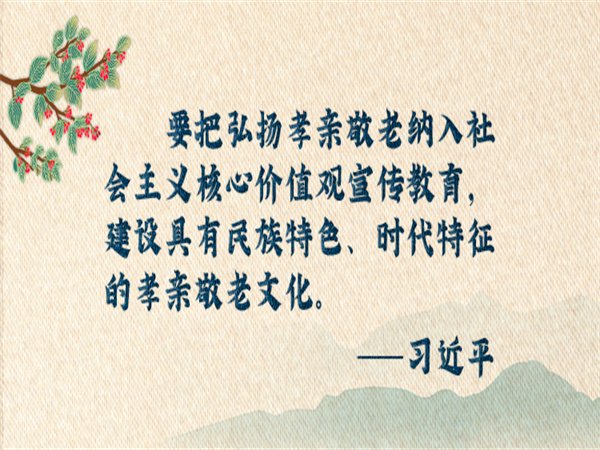 要把弘扬孝亲敬老纳入社
会主义核心价值观宣传教育，
建设具有民族特色、时代特征
的孝亲敬老文化。
——习近平